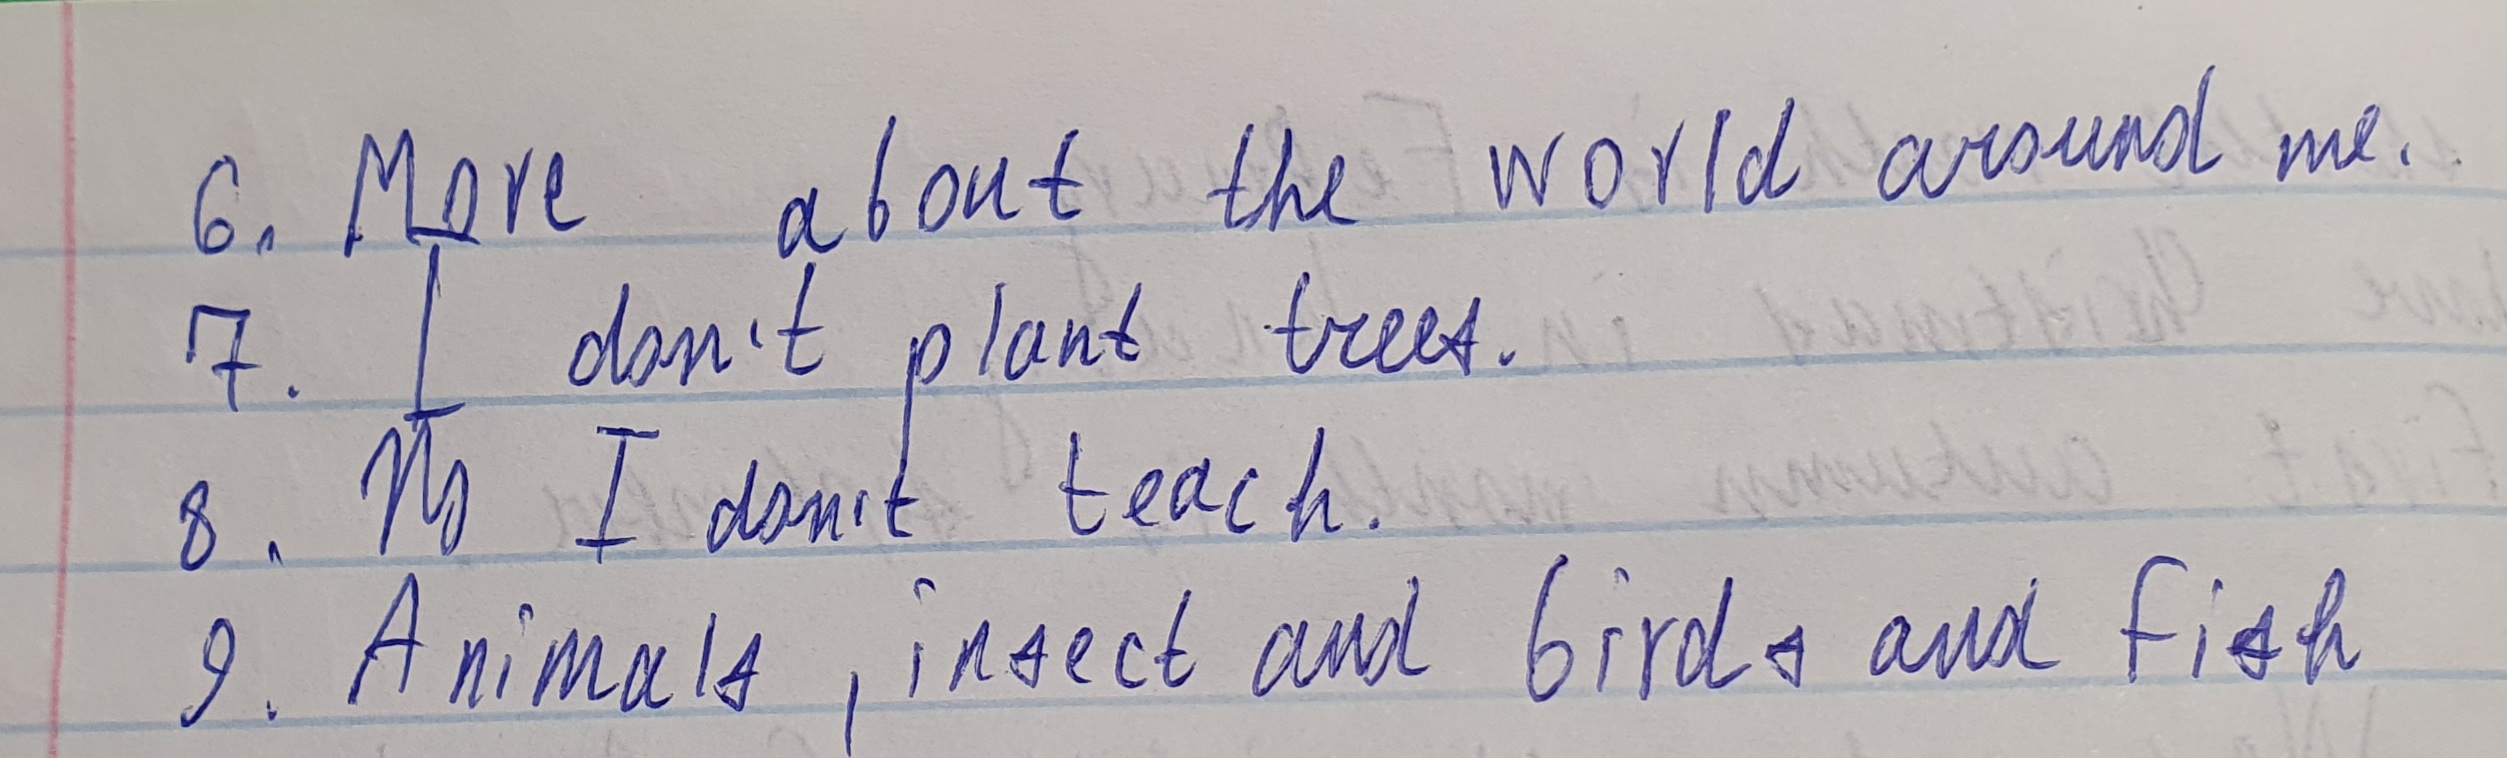 6. More about the world around me.
7. I don't plant trees.
8. No I don't teach.
9. Animals, insect and birds and fish